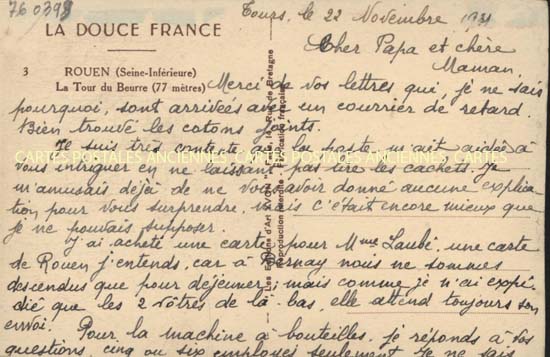 760398
Tours, le 22 Novembre 1931
LA DOUCE FRANCE
Cher Papa et chère
Maman,
3 ROUEN (Seine-Inférieure)
La Tour du Beurre (77 mètres)
Merci de vos lettres qui, je ne sais
pourquoi, sont arrivées avec un courrier de retard.
Bien trouvé les cotons joints.
Je suis très contente que la poste m'ait aidée à
vous intriguer en ne laissant pas lire les cachets. Je
m'amusais déjà de ne vous avoir donné aucune explica
tion pour vous surprendre, mais c'était encore mieux que
je ne pouvais supposer.
J'ai acheté une carte pour Mme Laubé, une carte
de Rouen j'entends, car à nous ne sommes
descendus que pour déjeuner, mais comme je n'ai expé-
dié que les 2 vôtres de là-bas, elle attend toujours son
envoi. Pour la machine à bouteilles, je réponds à vos
questions, cinq ou six employés seulement. Je ne sais
Les Editions d'Art YVON, Rue de Bretagne
Reproduction interdite Fabrication française
CARTES POSTALES ANCIENNES CARTES POSTALES ANCIENNES CARTES POSTALES ANCIENNES